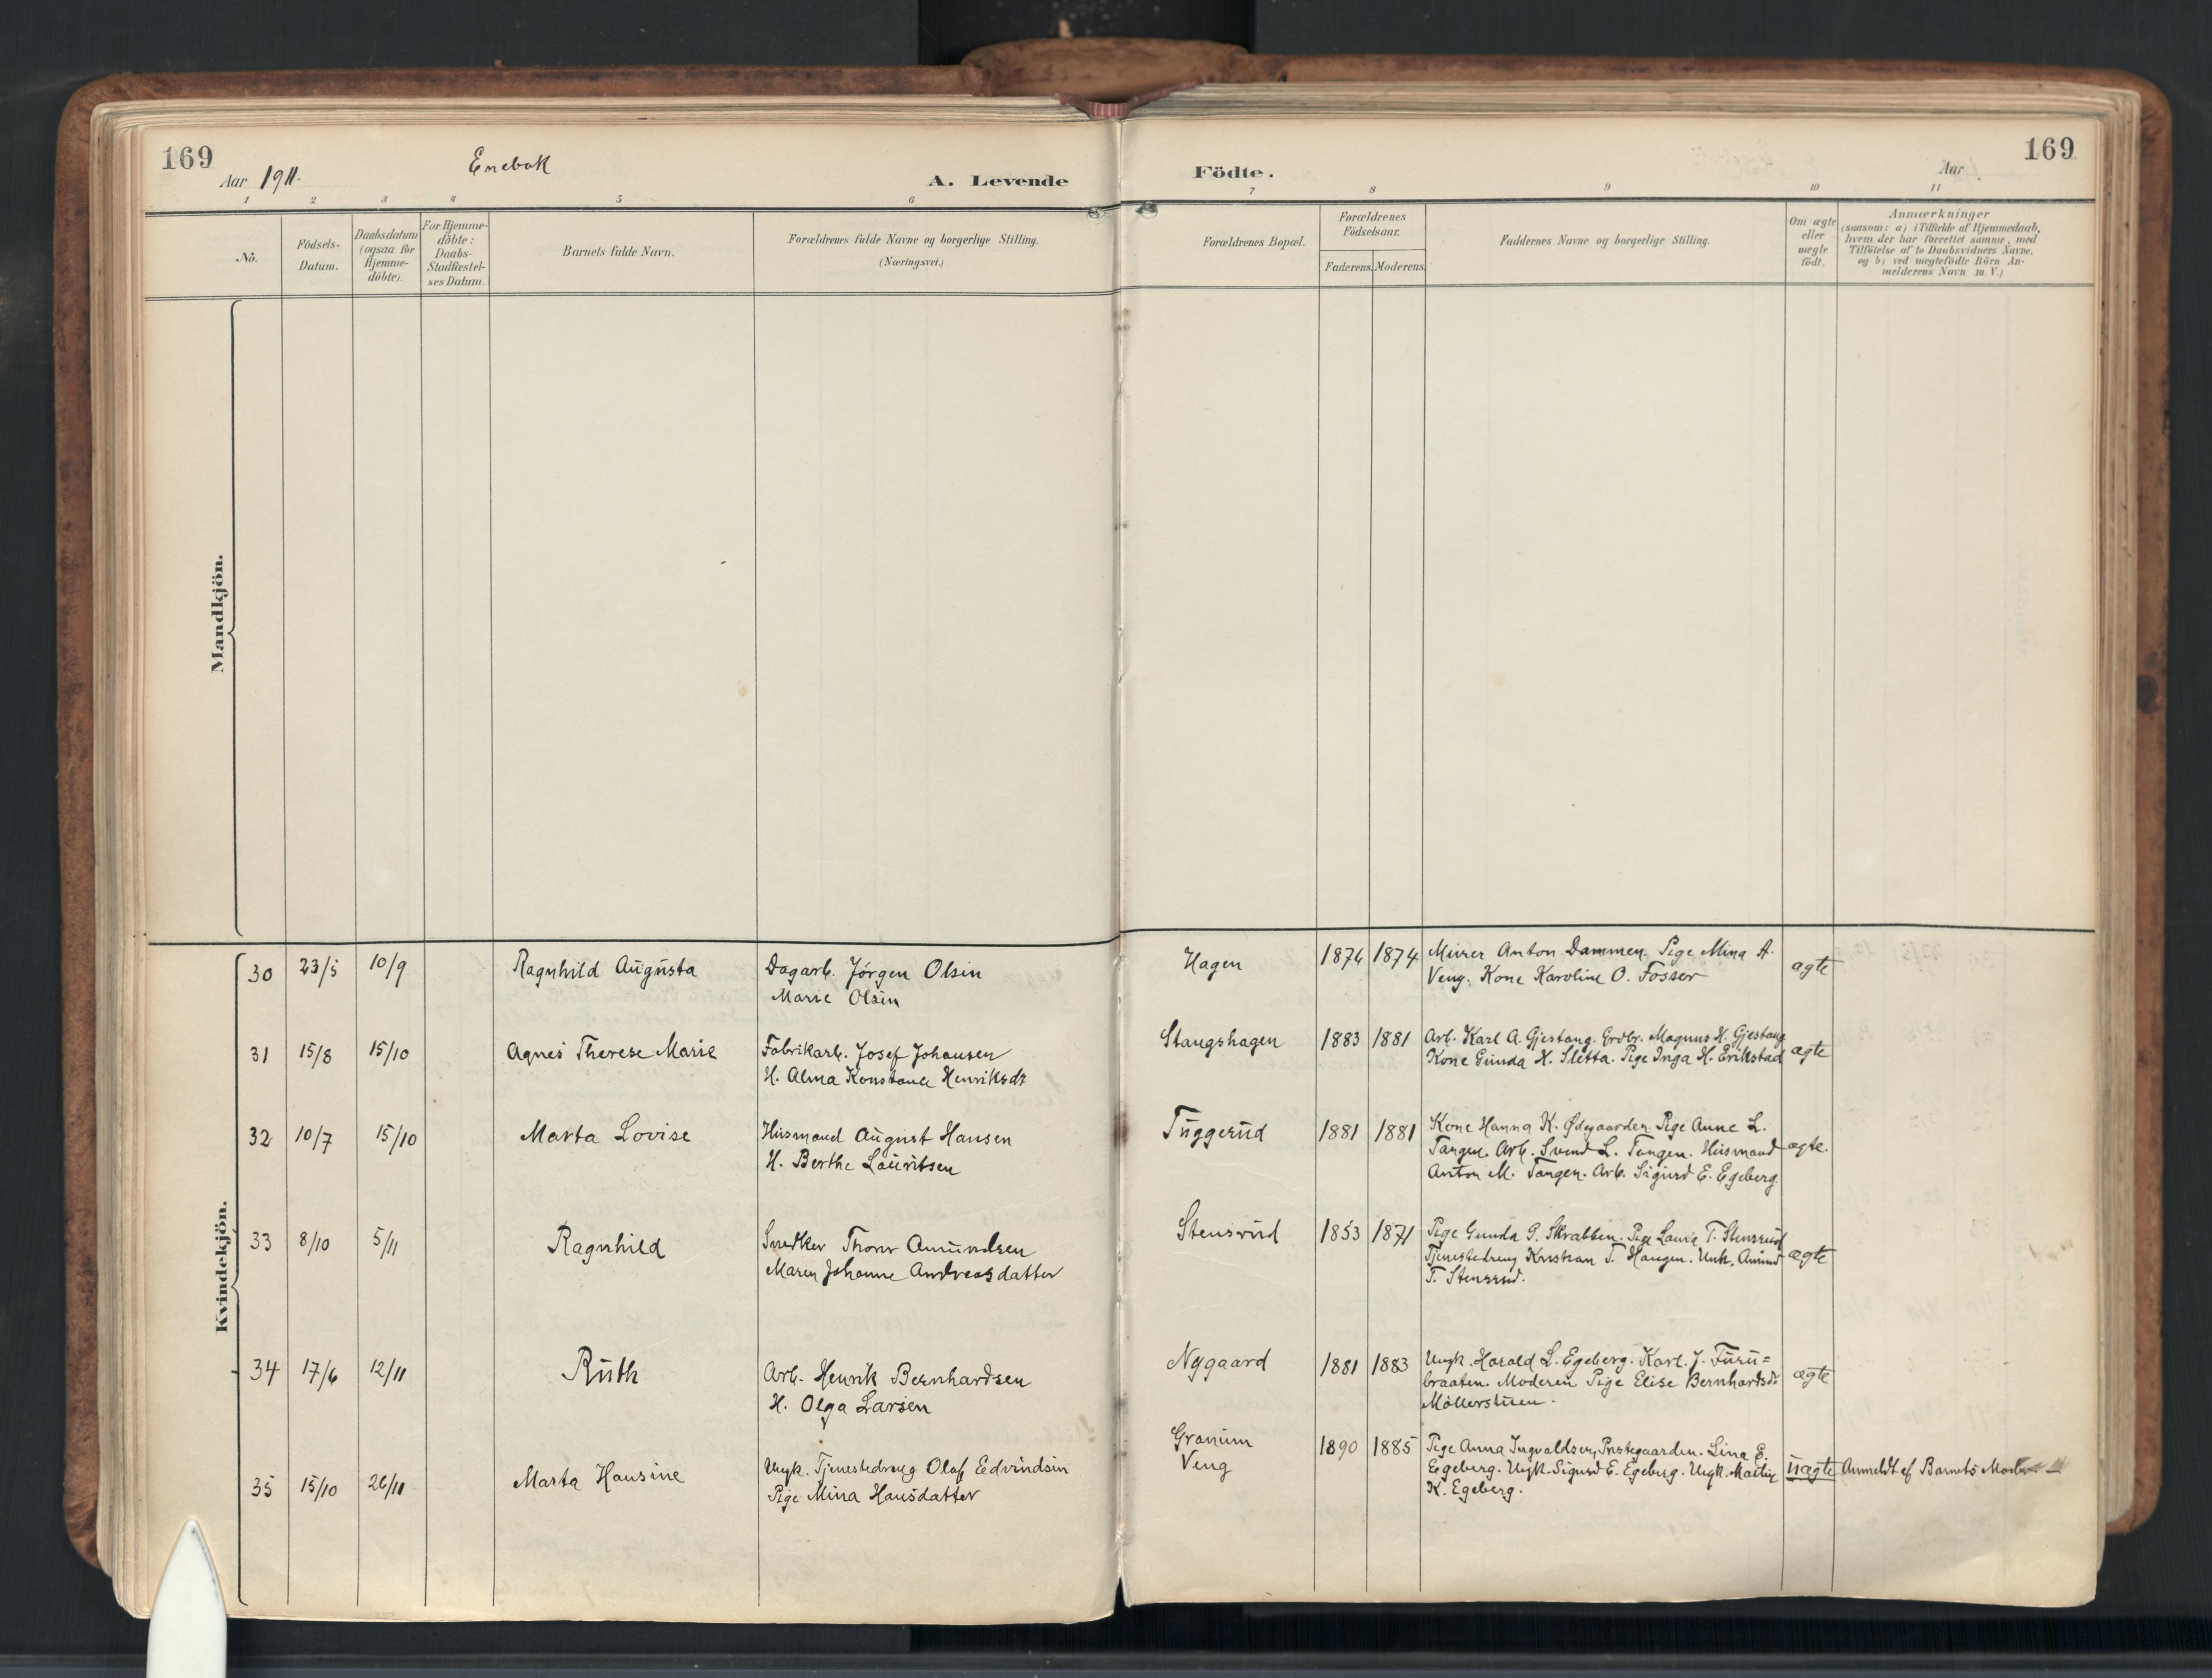 169
Aar 1911.
Enebak
A. Levende
Födte.
Aar
169
1 2 3 4 5 6 7 8 9 10 11
No.
Födsels-
Datum.
Daabsdatum
(ogsaa for
Hjemme-
döbte).
For Hjemme-
döbte:
Daabs-
Stadfæstel-
ses Datum.
Barnets fulde Navn.
Forældrenes fulde Navne og borgerlige Stilling.
(Næringsvei.)
Forældrenes Bopæl.
Forældrenes
Födselsaar.
Faderens. Moderens.
Faddernes Navne og borgerlige Stilling.
Om ægte
eller
uægte
födt.
Anmærkninger
(saasom: a) i Tilfælde af Hjemmedaab,
hvem der har forrettet samme, med
Tilföielse af to Daabsvidners Navne.
og b) ved uægtefödte Börn An-
melderens Navn m. V.)
Mandkjön.
Kvindekjön.
30 23/5 10/9 Ragnhild Augusta
Dagarb. Jörgen Olsen
Marie Olsen
Hagen 1874 1874
Murer Anton Dammen. Pige Mina A.
Veng. Kone Karoline O. Fosser
ægte
31 15/8 15/10 Agnes Therese Marie
Fabrikarb. Josef Johansen
H. Alma Konstance Henriksdt
Stangshagen 1883 1881
Arb. Karl A. Gjestang. Grdbr. Magnus H. Gjestang
Kone Gunda H. Sletta. Pige Inga H. Erikstad
ægte
32 10/7 15/10 Marta Lovise
Husmand August Hansen
H. Berthe Lauritsen
Tuggerud 1881 1881
Kone Hanna K. Ødegaarden. Pige Anne L.
Tangen. Arb. Svend L. Tangen. Husmand
Anton M. Tangen. Arb. Sigurd E. Egeberg
ægte.
33 8/10 5/11 Ragnhild
Snedker Thorer Amundsen
Maren Johanne Andreasdatter
Stensrud 1853 1871
Pige Gunda G. Skrabben. Pige Laura T. Stensrud
Tjenestedreng Kristian T. Haugen. Unk. Amund
T. Stensrud.
ægte
34 17/6 12/11 Ruth
Arb. Henrik Bernhardsen
H. Olga Larsen
Nygaard 1881 1883
Ungk. Harald L. Egeberg. Karl. J. Furu=
braaten. Moderen Pige Elise Bernhardsd:
Möllerstuen.
ægte
35 15/10 26/11 Marta Hansine
Ungk. Tjenestedreng Olaf Edvindsen
Pige Mina Hansdatter
Granum
Veng
1890 1885
Pige Anna Ingvaldsen, Prestegaarden. Lina E.
Egeberg. Ungk. Sigurd E. Egeberg. Ungk. Martin
K. Egeberg.
uægte Anmeldt af Barnets Moder